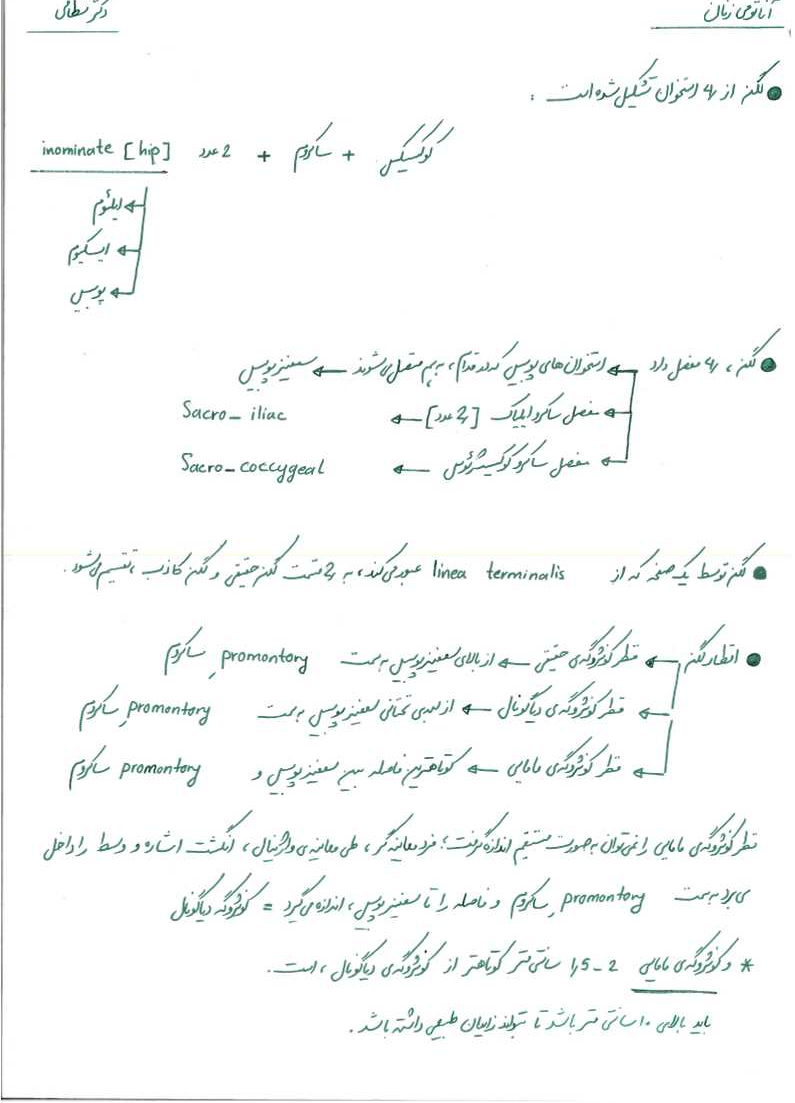 آناتومی زنان
دکتر عطائی
لگن از ۴ استخوان تشکیل شده است :
کوکسیکس + ساکروم + 2 عدد inominate [hip]
ایلئوم
ایسکیوم
پوبیس
لگن، ۴ مفصل دارد ← استخوان‌های پوبیس که در قدام، به هم متصل می‌شوند ← سمفیز پوبیس
← مفصل ساکروایلیاک [2 عدد] ← Sacro-iliac
← مفصل ساکروکوکسیژئوس ← Sacro-coccygeal
لگن توسط یک صفحه که از linea terminalis عبور می‌کند، به 2 قسمت لگن حقیقی و لگن کاذب، تقسیم می‌شود.
اقطار لگن ← قطر کونژوگه‌ی حقیقی ← از بالای سمفیز پوبیس به سمت promontory ساکروم
← قطر کونژوگه‌ی دیاگونال ← از لبه‌ی تحتانی سمفیز پوبیس به سمت promontory ساکروم
← قطر کونژوگه‌ی مامایی ← کوتاهترین فاصله بین سمفیز پوبیس و promontory ساکروم
قطر کونژوگه‌ی مامایی را نمی‌توان به صورت مستقیم اندازه گرفت؛ فرد معاینه گر، طی معاینه‌ی واژینال، انگشت اشاره و وسط را داخل
می‌برد به سمت promontory ساکروم و فاصله را تا سمفیز پوبیس، اندازه می‌گیرد = کونژوگه دیاگونال
* و کونژوگه‌ی مامایی 2 - 1,5 سانتی متر کوتاهتر از کونژوگه‌ی دیاگونال، است.
باید بالای ۱۰ سانتی متر باشد تا بتواند زایمان طبیعی داشته باشد.